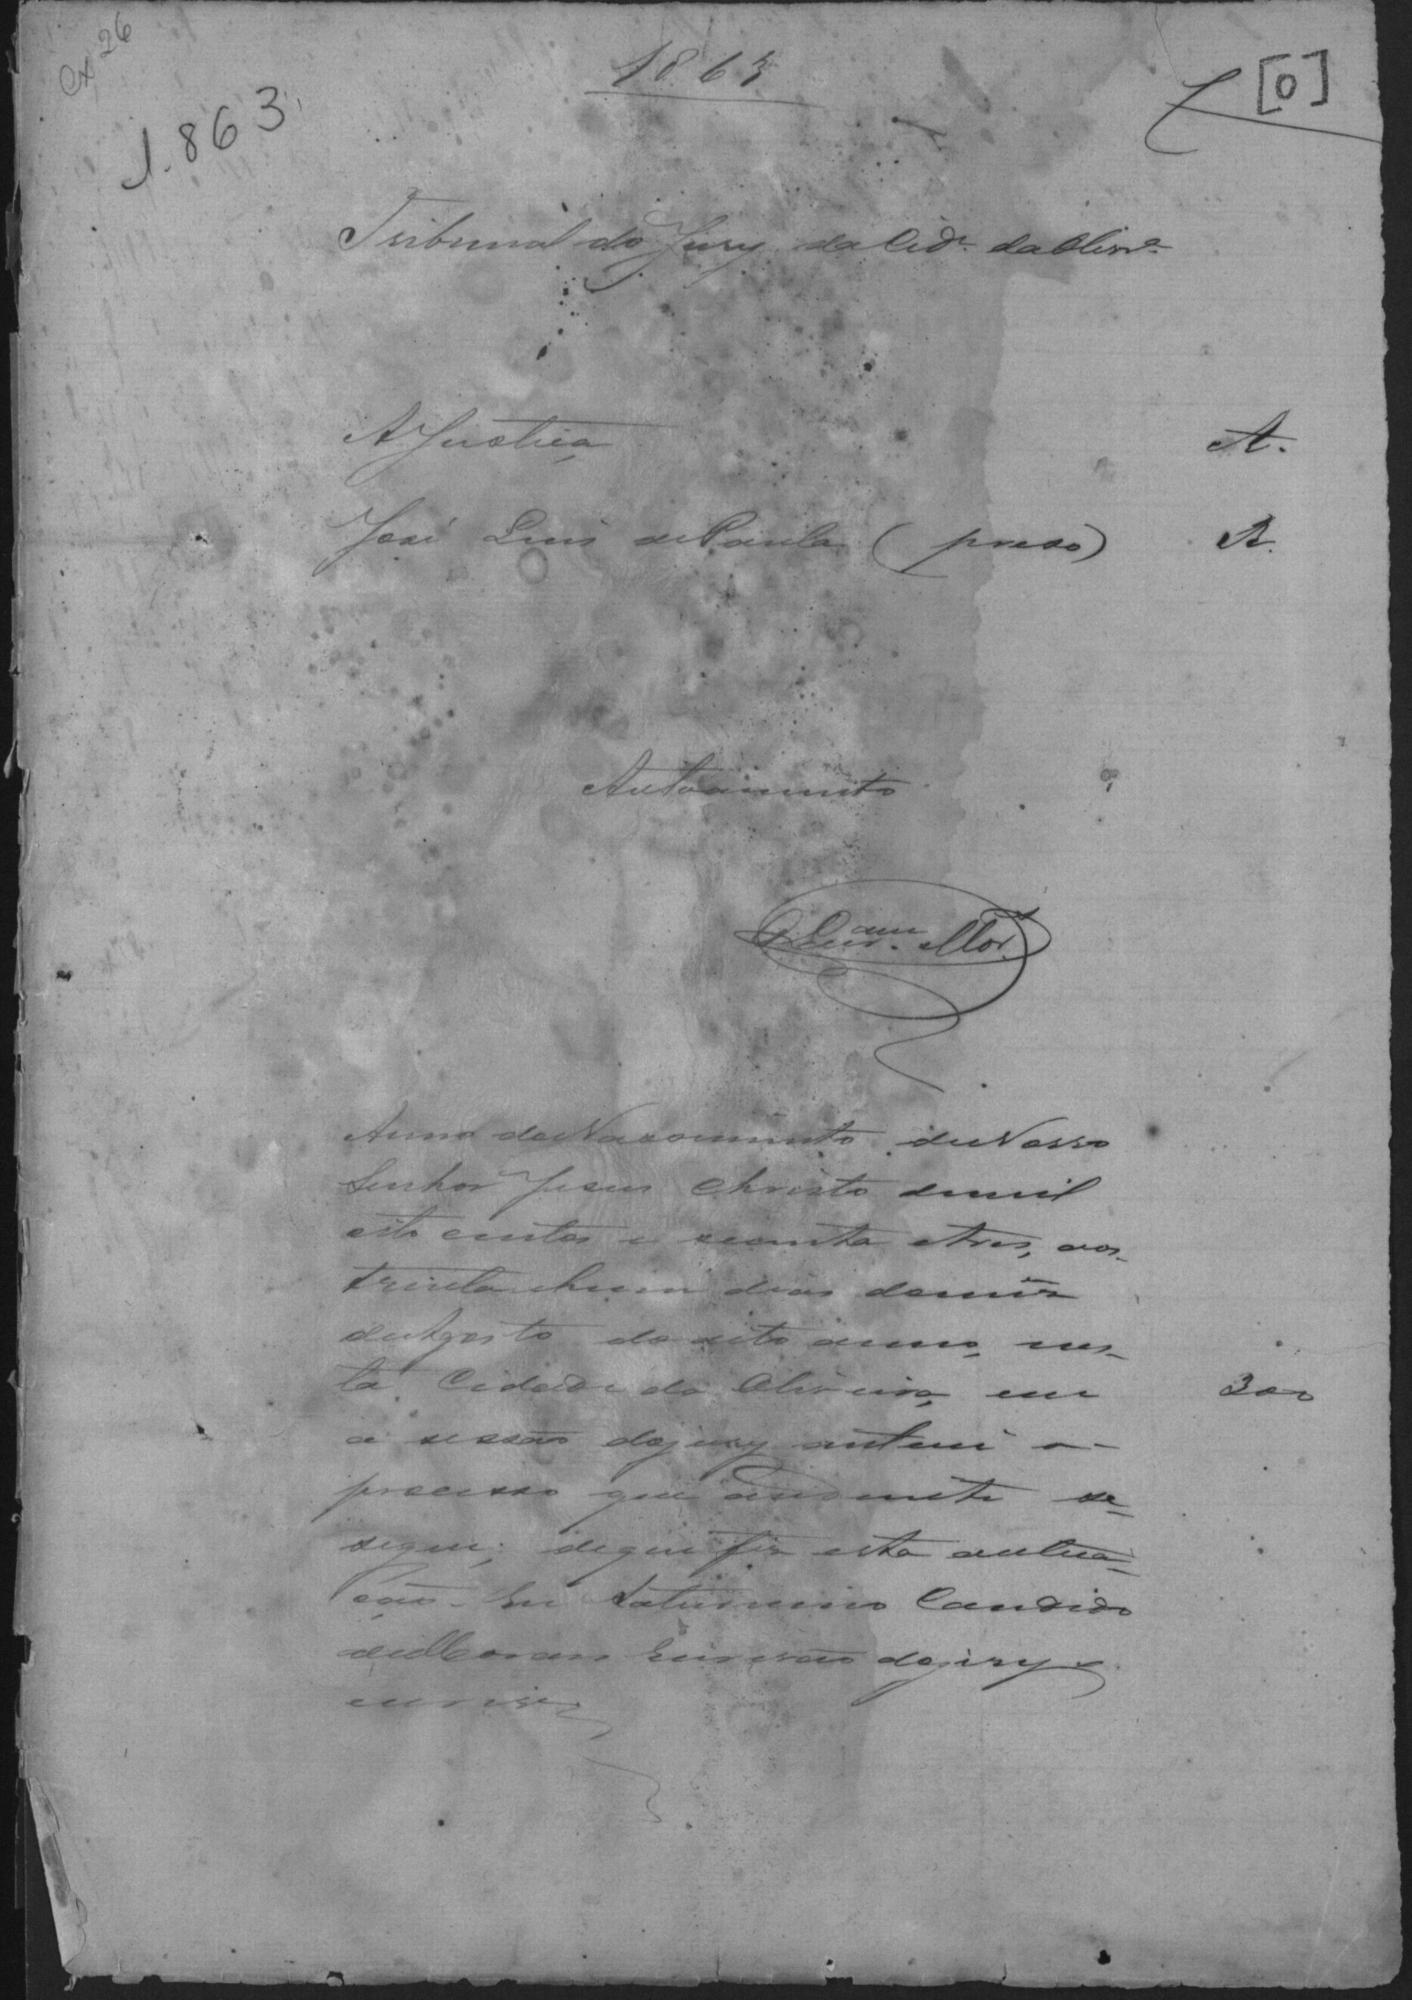 Cx 26
1863
1.863
[0]
Tribunal do Jury da Cid.e da Olivr.a
A Justiça A.
José Luis de Paula (preso) R.
Autoamento
Anno do Nascimento de Nosso
Senhor Jesus Christo de mil
oito centos e secenta e tres, aos
trinta e hum dias do mez
de Agosto do dito anno, nes-
ta Cidade da Oliveira, em 300
a sessão do jury autuei o
processo que ao diante se
segue; de que fiz esta autua-
ção. Eu Saturnino Candido
de Moraes Escrivão do jury
escrevi